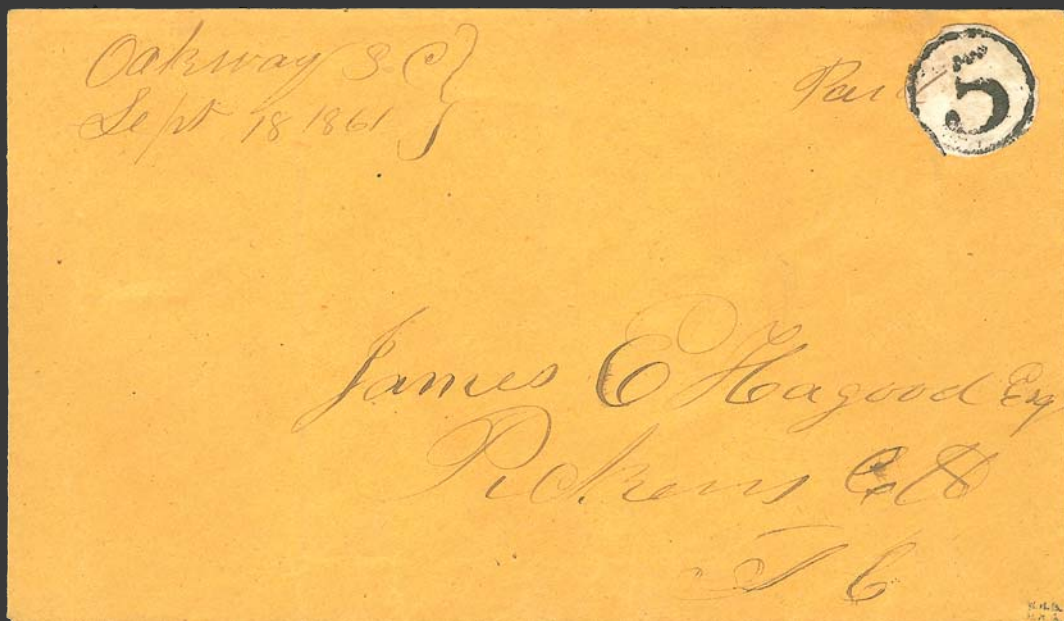 Oakway S. C
Sept 18 1861
Paid
5
James E Hagood Esq
Pickens C H
S C